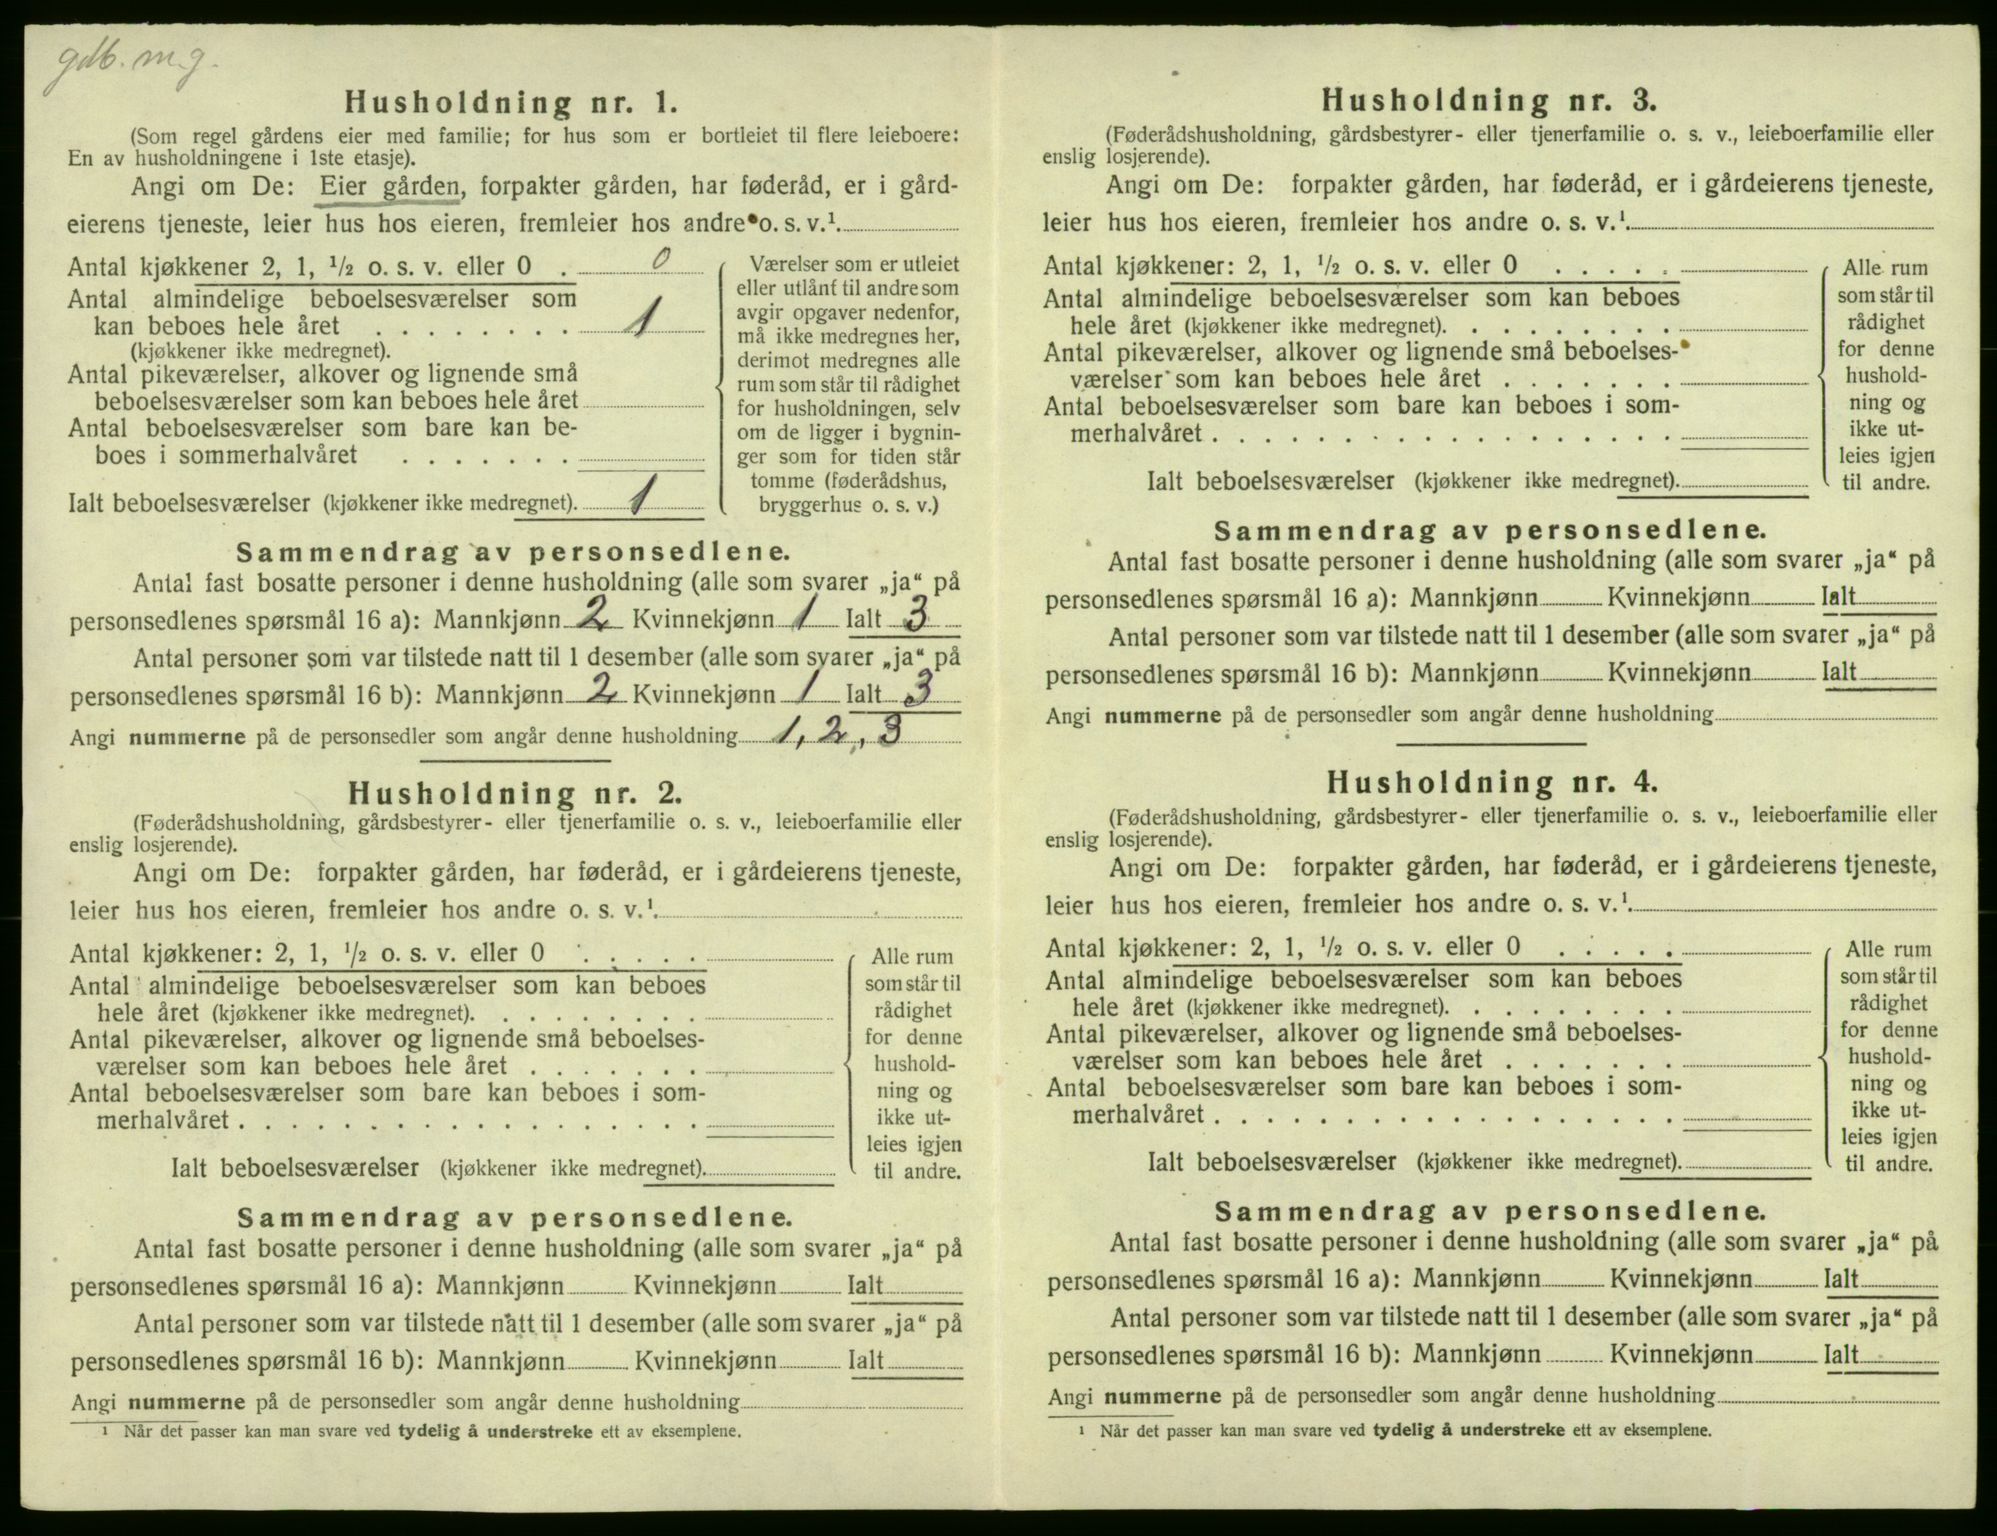 gdb. m.g.
Husholdning nr. 1.
(Som regel gårdens eier med familie; for hus som er bortleiet til flere leieboere:
En av husholdningene i 1ste etasje).
Angi om De: Eier gården, forpakter gården, har føderåd, er i gård-
eierens tjeneste, leier hus hos eieren, fremleier hos andre o. s. v.¹.
Antal kjøkkener 2, 1, ½ o. s. v. eller 0 . 0
Antal almindelige beboelsesværelser som
kan beboes hele året . . . . . . . . 1
(kjøkkener ikke medregnet).
Antal pikeværelser, alkover og lignende små
beboelsesværelser som kan beboes hele året
Antal beboelsesværelser som bare kan be-
boes i sommerhalvåret . . . . . . .
Ialt beboelsesværelser (kjøkkener ikke medregnet). 1
Værelser som er utleiet
eller utlånt til andre som
avgir opgaver nedenfor,
må ikke medregnes her,
derimot medregnes alle
rum som står til rådighet
for husholdningen, selv
om de ligger i bygnin-
ger som for tiden står
tomme (føderådshus,
bryggerhus o. s. v.)
Sammendrag av personsedlene.
Antal fast bosatte personer i denne husholdning (alle som svarer „ja“ på
personsedlenes spørsmål 16 a): Mannkjønn 2 Kvinnekjønn 1 Ialt 3
Antal personer som var tilstede natt til 1 desember (alle som svarer „ja“ på
personsedlenes spørsmål 16 b): Mannkjønn 2 Kvinnekjønn 1 Ialt 3
Angi nummerne på de personsedler som angår denne husholdning 1, 2, 3
Husholdning nr. 2.
(Føderådshusholdning, gårdsbestyrer- eller tjenerfamilie o. s. v., leieboerfamilie eller
enslig losjerende).
Angi om De: forpakter gården, har føderåd, er i gårdeierens tjeneste,
leier hus hos eieren, fremleier hos andre o. s. v.¹.
Antal kjøkkener: 2, 1, ½ o. s. v. eller 0 . . . . .
Antal almindelige beboelsesværelser som kan beboes
hele året (kjøkkener ikke medregnet). . . . . . . . .
Antal pikeværelser, alkover og lignende små beboelses-
værelser som kan beboes hele året . . . . . . .
Antal beboelsesværelser som bare kan beboes i som-
merhalvåret . . . . . . . . . . . . . . . . . .
Ialt beboelsesværelser (kjøkkener ikke medregnet).
Alle rum
som står til
rådighet
for denne
hushold-
ning og
ikke ut-
leies igjen
til andre.
Sammendrag av personsedlene.
Antal fast bosatte personer i denne husholdning (alle som svarer „ja“ på
personsedlenes spørsmål 16 a): Mannkjønn Kvinnekjønn Ialt
Antal personer som var tilstede natt til 1 desember (alle som svarer „ja“ på
personsedlenes spørsmål 16 b): Mannkjønn Kvinnekjønn Ialt
Angi nummerne på de personsedler som angår denne husholdning
¹ Når det passer kan man svare ved tydelig å understreke ett av eksemplene.
Husholdning nr. 3.
(Føderådshusholdning, gårdsbestyrer- eller tjenerfamilie o. s. v., leieboerfamilie eller
enslig losjerende).
Angi om De: forpakter gården, har føderåd, er i gårdeierens tjeneste,
leier hus hos eieren, fremleier hos andre o. s. v.¹.
Antal kjøkkener: 2, 1, ½ o. s. v. eller 0 . . . . .
Antal almindelige beboelsesværelser som kan beboes
hele året (kjøkkener ikke medregnet). . . . . . . . .
Antal pikeværelser, alkover og lignende små beboelses-
værelser som kan beboes hele året . . . . . . .
Antal beboelsesværelser som bare kan beboes i som-
merhalvåret . . . . . . . . . . . . . . . . . .
Ialt beboelsesværelser (kjøkkener ikke medregnet).
Alle rum
som står til
rådighet
for denne
hushold-
ning og
ikke ut-
leies igjen
til andre.
Sammendrag av personsedlene.
Antal fast bosatte personer i denne husholdning (alle som svarer „ja“ på
personsedlenes spørsmål 16 a): Mannkjønn Kvinnekjønn Ialt
Antal personer som var tilstede natt til 1 desember (alle som svarer „ja“ på
personsedlenes spørsmål 16 b): Mannkjønn Kvinnekjønn Ialt
Angi nummerne på de personsedler som angår denne husholdning
Husholdning nr. 4.
(Føderådshusholdning, gårdsbestyrer- eller tjenerfamilie o. s. v., leieboerfamilie eller
enslig losjerende).
Angi om De: forpakter gården, har føderåd, er i gårdeierens tjeneste,
leier hus hos eieren, fremleier hos andre o. s. v.¹.
Antal kjøkkener: 2, 1, ½ o. s. v. eller 0 . . . . .
Antal almindelige beboelsesværelser som kan beboes
hele året (kjøkkener ikke medregnet). . . . . . . . .
Antal pikeværelser, alkover og lignende små beboelses-
værelser som kan beboes hele året . . . . . . .
Antal beboelsesværelser som bare kan beboes i som-
merhalvåret . . . . . . . . . . . . . . . . . .
Ialt beboelsesværelser (kjøkkener ikke medregnet).
Alle rum
som står til
rådighet
for denne
hushold-
ning og
ikke ut-
leies igjen
til andre.
Sammendrag av personsedlene.
Antal fast bosatte personer i denne husholdning (alle som svarer „ja“ på
personsedlenes spørsmål 16 a): Mannkjønn Kvinnekjønn Ialt
Antal personer som var tilstede natt til 1 desember (alle som svarer „ja“ på
personsedlenes spørsmål 16 b): Mannkjønn Kvinnekjønn Ialt
Angi nummerne på de personsedler som angår denne husholdning
¹ Når det passer kan man svare ved tydelig å understreke ett av eksemplene.